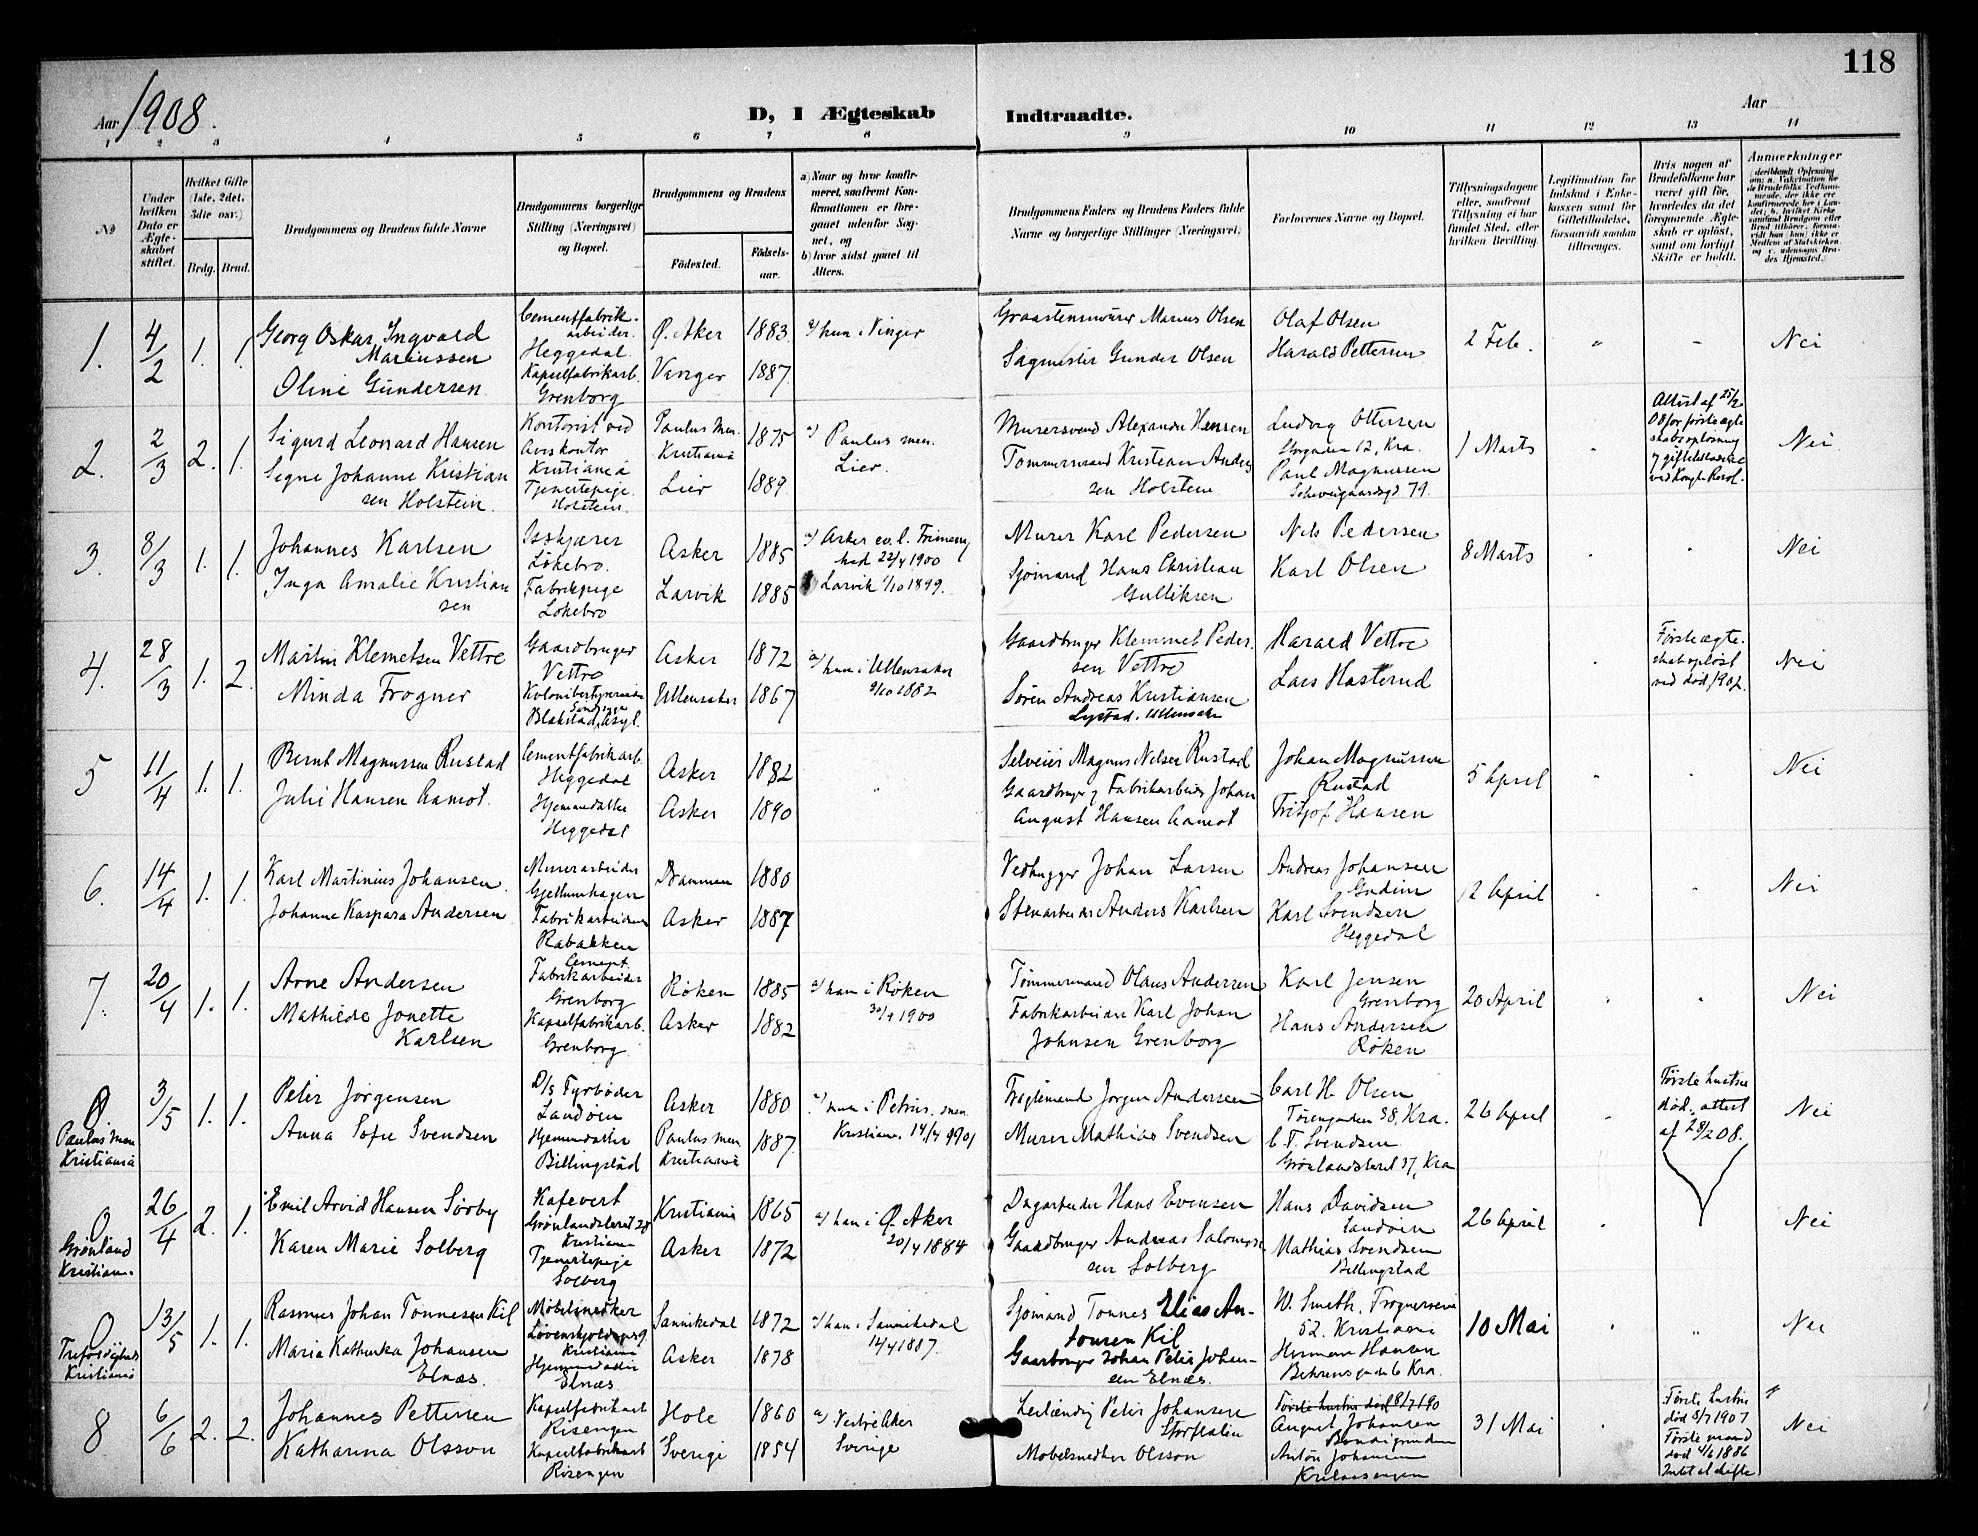 118
Aar 1908.
D, I Ægteskab Indtraadte.
Aar
1 2 3 4 5 6 7 8 9 10 11 12 13 14
№
Under hvilken Dato er Ægteskabet stiftet.
Hvilket Gifte (1ste, 2det, 3die osv.)
Brdg. Brud.
Brudgommens og Brudens fulde Navne
Brudgommens borgerlige Stilling (Næringsvei) og Bopæl.
Brudgommens og Brudens
Fødested. Fødselsaar.
a) Naar og hvor konfirmeret, saafremt Konfirmationen er foregaaet udenfor Sognet, og
b) hvor sidst gaaet til Alters.
Brudgommens Faders og Brudens Faders fulde Navne og borgerlige Stillinger (Næringsvei)
Forlovernes Navne og Bopæl.
Tillysningsdagene eller, saafremt Tillysning ei har fundet Sted, efter hvilken Bevilling.
Legitimation for Indskud i Enkekassen samt for Giftetilladelse, forsaavidt saadan tiltrænges.
Hvis nogen af Brudefolkene har været gift før, hvorledes da det foregaaende Ægteskab er opløst, samt om lovligt Skifte er holdt.
Anmærkninger
1. 4/2 1. 1.
Georg Oskar Ingvald Mariussen
Oline Gundersen
Cementfabrikarbeider. Heggedal.
Kapselfabrikarb. Grenborg
Ø. Aker 1883
Vanger 1887
a) hun i Vinger
Graastensmurer Marius Olsen
Sagmester Gunder Olsen
Olaf Olsen
Harald Pettersen
2 Feb. " - Nei
2. 2/3 2. 1.
Sigurd Leonard Hansen
Signe Johanne Kristiansen Holstein.
Kontorist ved Aviskontor Kristiania
Tjenestepige. Holstein.
Paulus men. Kristiania 1875
Lier 1889
a) Paulus men.
Lier.
Murersvend Alexander Hansen
Tømmermand Kristian Andersen Holstein
Ludvig Ottersen
Storgaden 12, Kra.
Paul Magnussen
Schweigaardsgd 79.
1 Marts
Attest af 25/2 08 for første ægteskabs opløsning
Nei
3. 8/3 1. 1.
Johannes Karlsen
Inga Amalie Kristiansen
Isskjærer Løkebro.
Fabrikpige Løkebro
Asker 1885
Larvik 1885
a) Asker ev. l. Frimenighed 22/4 1900
Larvik 1/10 1899.
Murer Karl Pedersen
Sjømand Hans Christian Gulliksen
Nils Pedersen
Karl Olsen
8 Marts Nei
4. 28/3 1. 2.
Martin Klemetsen Vettre
Minda Frogner
Gaardbruger Vettre
Blakstad, Asyl.
Asker 1872
Ullensaker 1867
a) hun i Ullensaker
9/10 1882
Gaardbruger Klemmet Pedersen Vettre
Søren Andreas Kristiansen
Lystad. Ullensaker
Harald Vettre
Lars Hasterud
Første ægteskab opløst ved død 1902.
Nei
5 11/4 1. 1.
Bernt Magnussen Rustad
Julie Hansen Aamot.
Cementfabrikarb. Heggedal
Hjemmedatter Heggedal
Asker 1882
Asker 1890
Selveier Magnus Nelsen Rustad
Gaardbruger og Fabrikarbeider Johan August Hansen Aamot
Johan Magnussen Rustad
Fritjof Hansen
5 April Nei
6. 14/4 1. 1.
Karl Martinius Johansen.
Johanne Kaspara Andersen
Murerarbeider Gjellumhagen
Fabrikarbeider Rabakken
Drammen 1880
Asker 1887
Vedhugger Johan Larsen
Stenarbeider Anders Karlsen
Andreas Johansen Gudim
Karl Svendsen Heggedal
12 April Nei
7. 20/4 1. 1.
Arne Andersen
Mathilde Jonette Karlsen
Cement Fabrikarbeider Grenborg
Kapselfabrikarb. Grenborg
Røken 1885
Asker 1882
a) han i Røken
30/9 1900
Tømmermand Olaus Andersen
Fabrikarbeider Karl Johan Johnsen Grenborg
Karl Jensen Grenborg
Hans Andersen Røken
20 April Nei
0 Paulus Men Kristiania
3/5 1. 1.
Peter Jørgensen
Anna Sofie Svendsen
D/s Fyrbøder Landøen
Hjemmedatter Billingstad
Asker 1880
Paulus men Kristiania 1887
a) hun i Petrus. men
Kristiania. 14/4 1901
Jørgen Andersen
Murer Mathias Svendsen
Carl H. Olsen
Tøiengaden 38, Kra.
C. T. Svendsen
Grønlandsleret 37, Kra
26 April
Første hustru død. attest af 28/2 08.
Nei
0 Grønland Kristiania.
26/4 2. 1.
Emil Arvid Hansen Sørby
Karen Marie Solberg
Kafevert Grønlandsleret 28 Kristiania
Tjenestepige Solberg
Kristiania 1865
Asker 1872
a) han i Ø. Aker
20/4 1884
Dagarbeider Hans Evensen
Gaardbruger Andreas Salomonsen Solberg
Hans Davidsen Landøen
Mathias Svendsen Billingstad
26 April Nei
0 Trefoldigheds Kristiania
13/5 1. 1.
Rasmus Johan Tonnesen Kil
Maria Kathinka Johansen Elnæs.
Møbelsnedker Løvenskjoldsgs 9 Kristiania
Hjemmedatter Elnæs
Sannikedal 1872
Asker 1878
a) han i Sannikedal
14/4 1887.
Sjømand Tonnes Elias Antonsen Kil
Gaarbruger Johan Peter Johansen Elnæs.
W. Smeth, Frognerveien 52. Kristiania
Herman Hansen
Behrensgade 6 Kra.
10 Mai " Nei
8 6/6 2. 2.
Johannes Pettersen
Katharina Olsson
Kapselfabrikarb Risengen
Kapselfabrikarb Risengen
Hole 1860
Sverige 1854
a) Vestre Aker
Sverige
Leilænding Peter Johansen
Møbelsnedker Olsson
Første hustru død 8/7 190
August Johansen
Anton Johansen
31 Mai
Første hustru død 8/7 1907
Første mand død 4/6 1886
Intet skifte
Nei